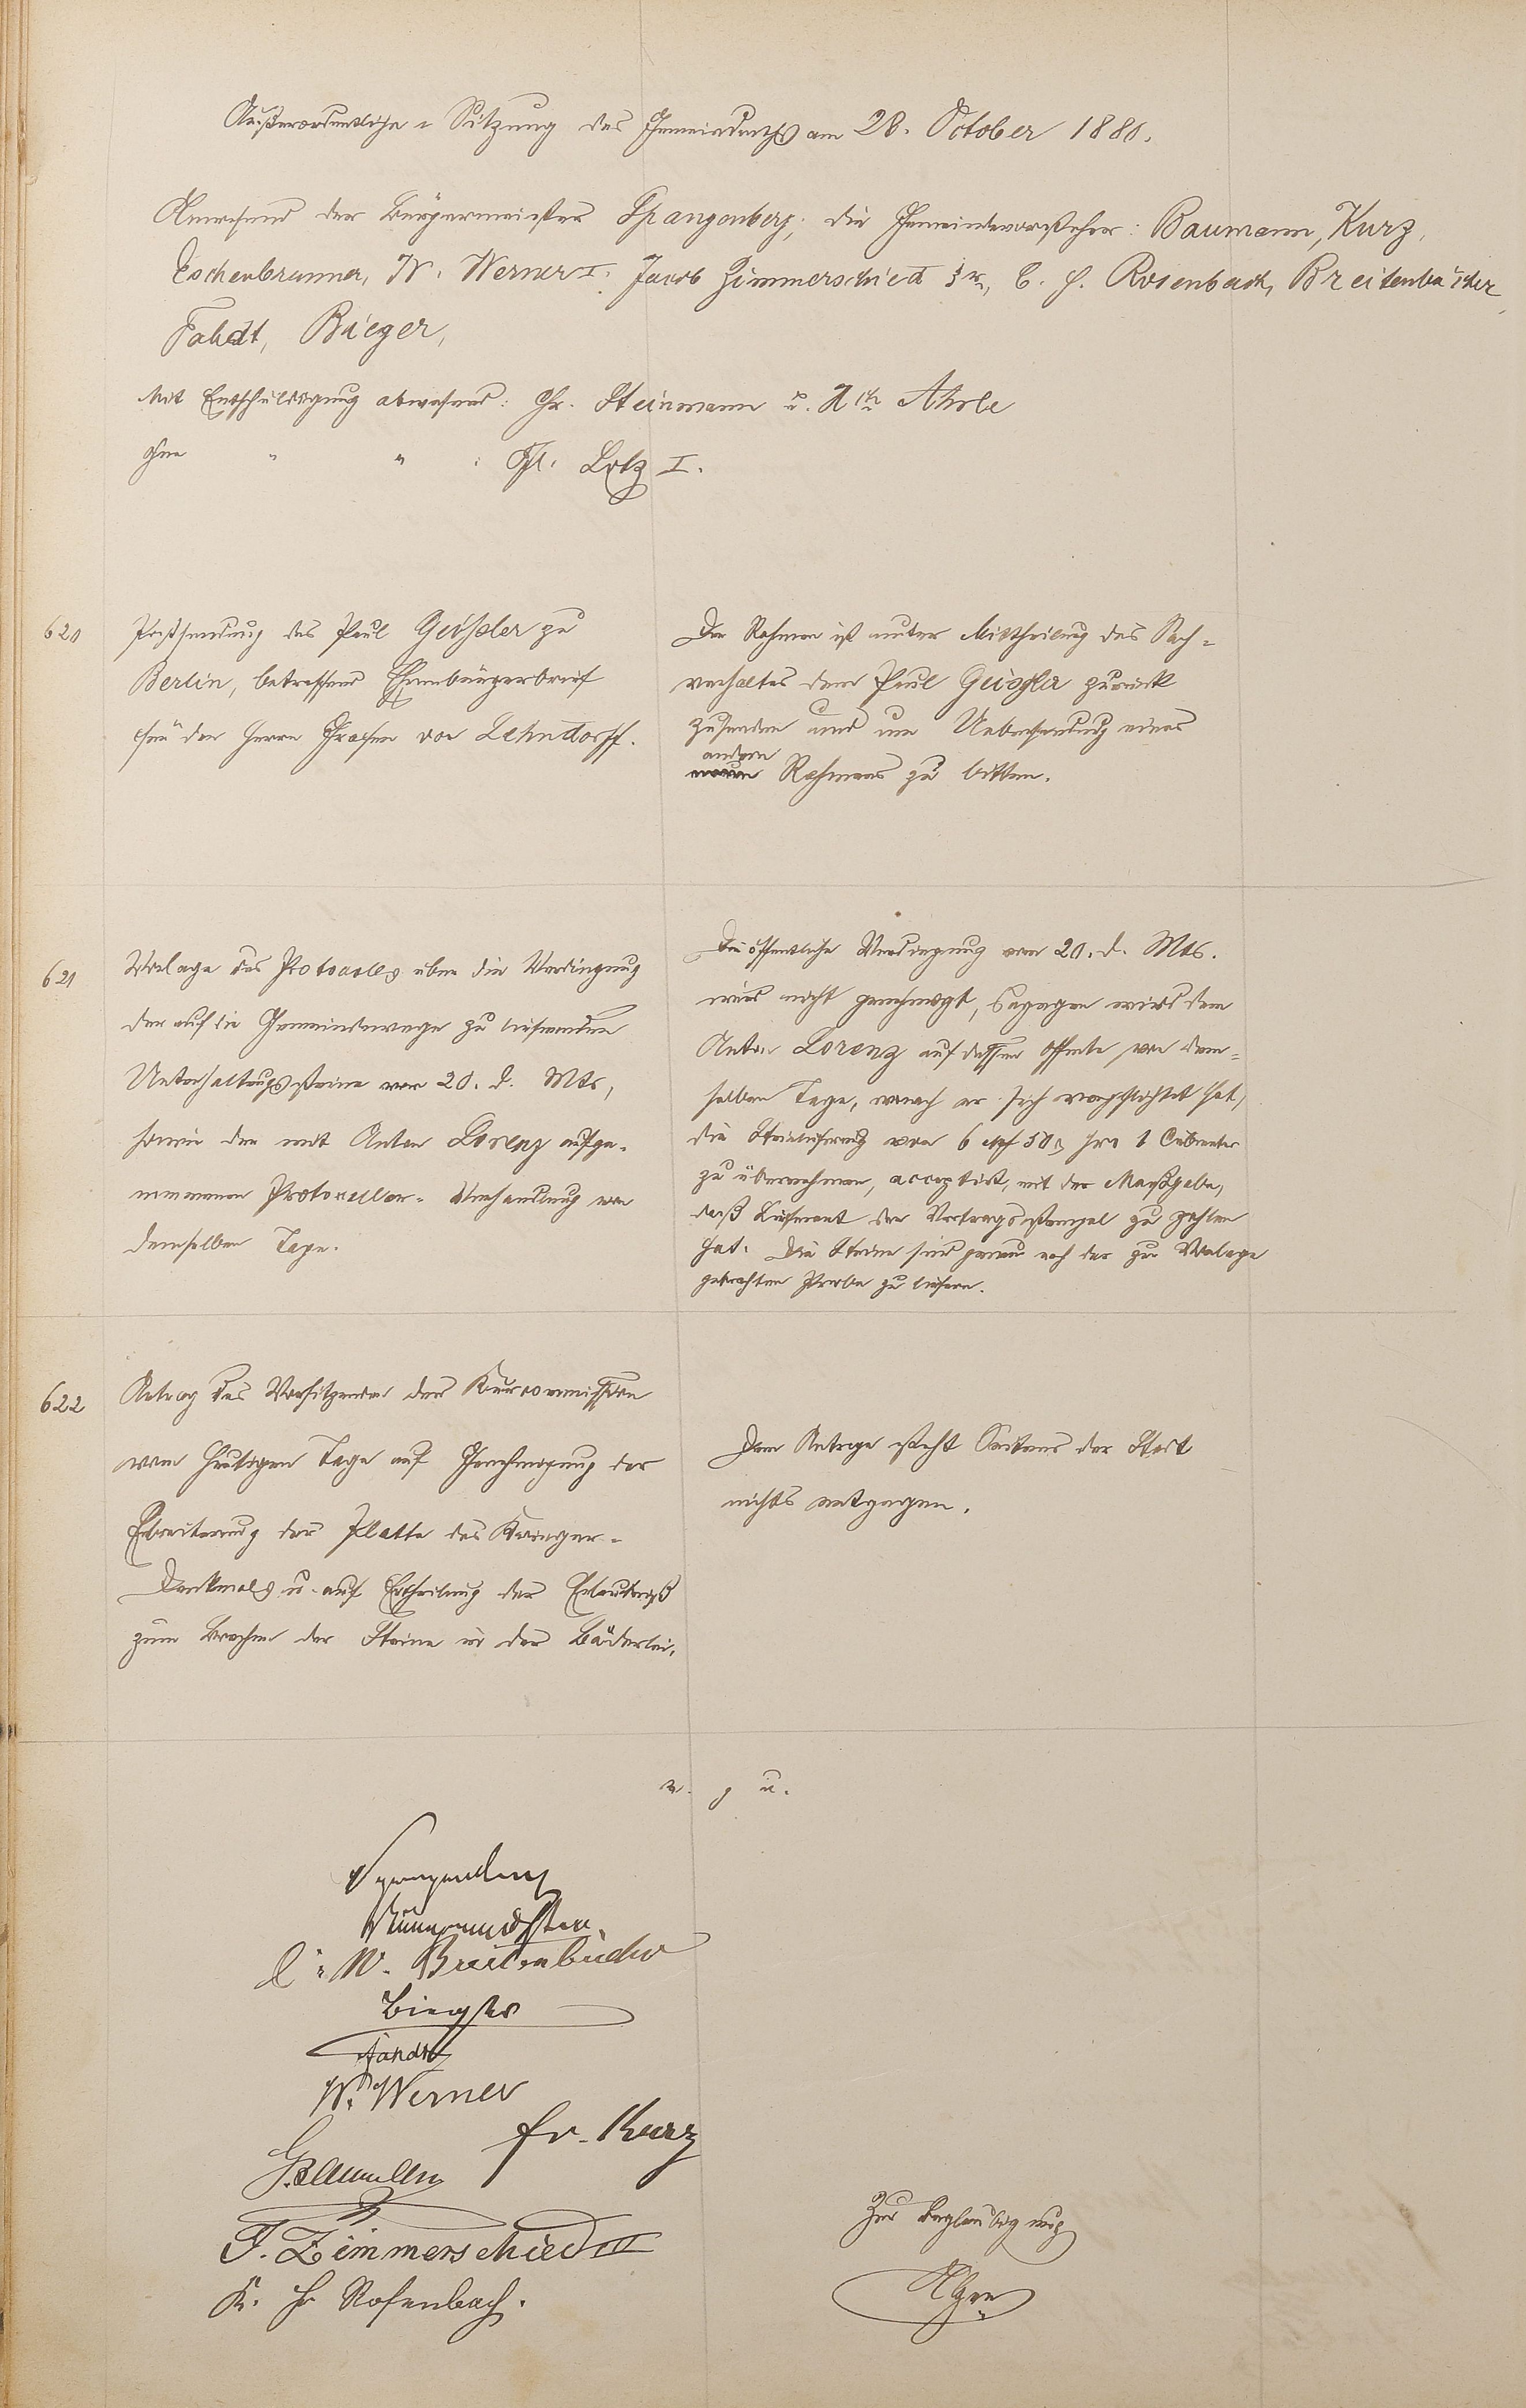 Außerordentliche Sitzung des Gemeinderaths am 28. October 1880.
Anwesend der Bürgermeister Spangenberg; die Gemeindevorsteher: Baumann, Kurz,
Eschenbrenner, W. Werner I. Jacob Zimmerschied, C. H. Rosenbach, Breitenbücher
Fahdt, Bieger,
Mit Entschuldigung abwesend: Chr. Steinmann u. Ahrle
ohne " " : Lotz I.
620
Postsendung des Paul Geißler zu
Berlin, betreffend Ehrenbürgerbrief
für den Herrn Grafen von Lehndorff.
Der Rahmen ist unter Mittheilung des Sach-
verhaltes dem Paul Geißler zurück
zusenden und um Uebersendung eines
andern
Rahmens zu bitten.
621
Vorlage des Protocolls über die Verdingung
der auf die Gemeindewege zu liefernden
Unterhaltungssteine vom 20. d. Mts,
sowie der mit Anton Lorenz aufge-
nommenen Protocollar-Verhandlung von
demselben Tage.
Die öffentliche Verdingung vom 20. d. Mts.
wird nicht genehmigt, dagegen wird dem
Anton Lorenz auf dessen Offerte von dem-
selben Tage, wonach er sich verpflichtet hat,
die Steinlieferung von 6 M 50 pro 1 Cubmeter
zu übernehmen, acceptirt, mit der Maßgabe,
daß Lieferant den Vertragsstempel zu zahlen
hat. Die Steine sind genau nach der zur Vorlage
gebrachten Probe zu liefern.
622
Antrag des Vorsitzenden der Kurcommission
vom heutigen Tage auf Genehmigung der
Erbreiterung der Platte des Krieger-
Denkmals u. auf Ertheilung der Erlaubniß
zum Brechen der Steine in der Bäderlei.
Dem Antrage steht Seitens der Stadt
nichts entgegen.
v. g. u.
Spangenberg
Bürgermeister.
W. Breitenbücher
Bieger
Fahdt
W. Werner
Fr. Kurz
G. Baumann
J. Zimmerschied III
K. H. Rosenbach.
Zur Beglaubigung